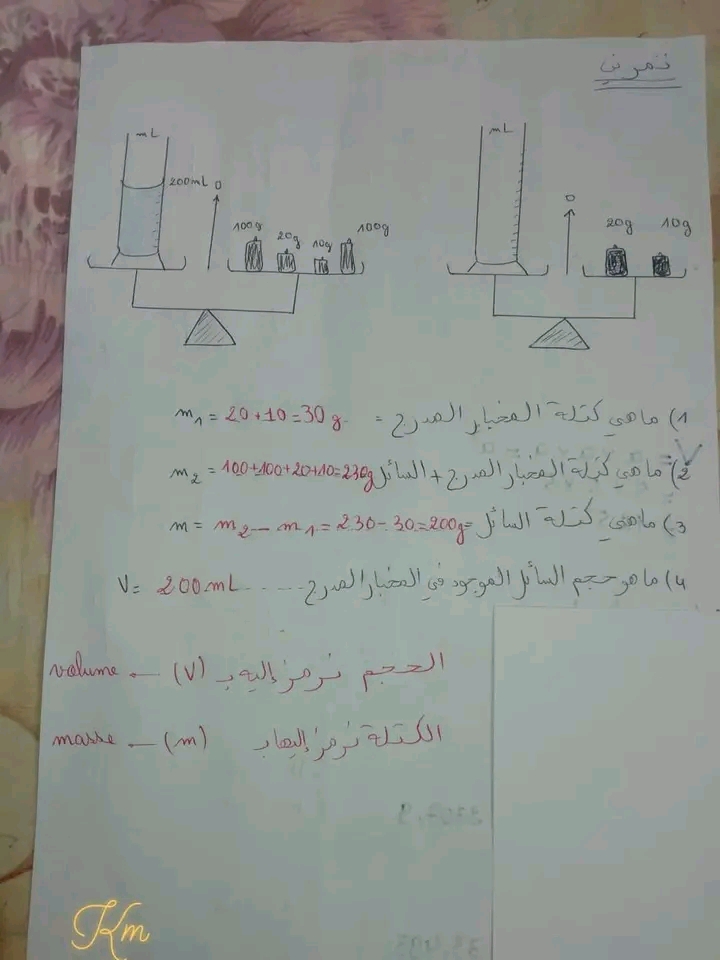 تمرين
mL
200mL 0
100g 20g 10g 100g
mL
0
20g 10g
1) ما هي كتلة المخبار المدرج = m₁ = 20+10=30g.
2) ما هي كتلة المخبار المدرج + السائل m₂ = 100+100+20+10=230g
3) ما هي كتلة السائل = m = m₂ – m₁ = 230-30=200g
4) ما هو حجم السائل الموجود في المخبار المدرج ..... V= 200mL
الحجم نرمز إليه بـ (V) – volume
الكتلة نرمز إليها بـ (m) – masse
Km